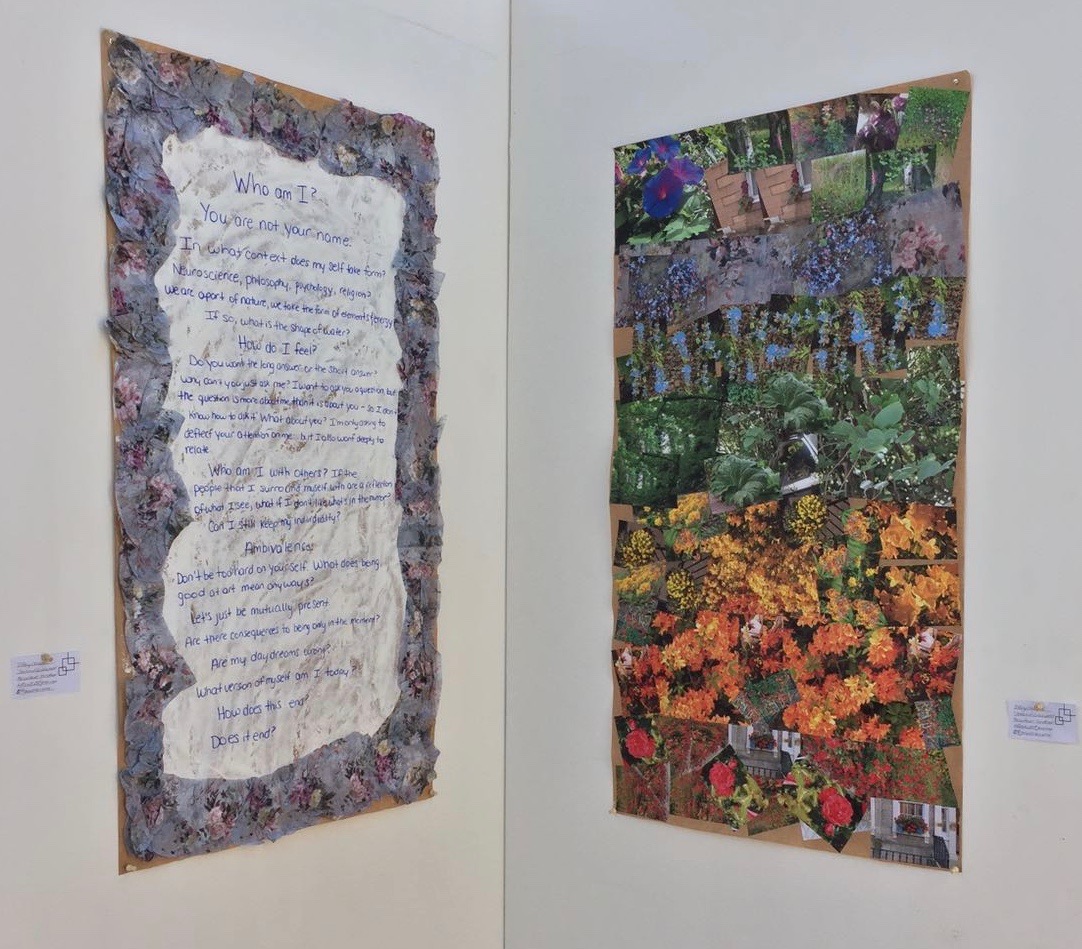 Who am I?
You are not your name.
In what context does my self take form?
Neuroscience, philosophy, psychology, religion?
We are apart of nature, we take the form of elements & energy
If so, what is the shape of water?
How do I feel?
Do you want the long answer or the short answer?
Why can't you just ask me? I want to ask you a question but
the question is more about me than it is about you - so I don't
know how to ask it. What about you? I'm only asking to
deflect your attention on me but I also want deeply to
relate.
Who am I with others? If the
people that I surround myself with are a reflection
of what I see, what if I don't like what's in the mirror?
Can I still keep my individuality?
Ambivalence.
Don't be too hard on yourself. What does being
good at art mean anyways?
Let's just be mutually present
Are there consequences to being only in the moment?
Are my daydreams wrong?
What version of myself am I today?
How does this end?
Does it end?